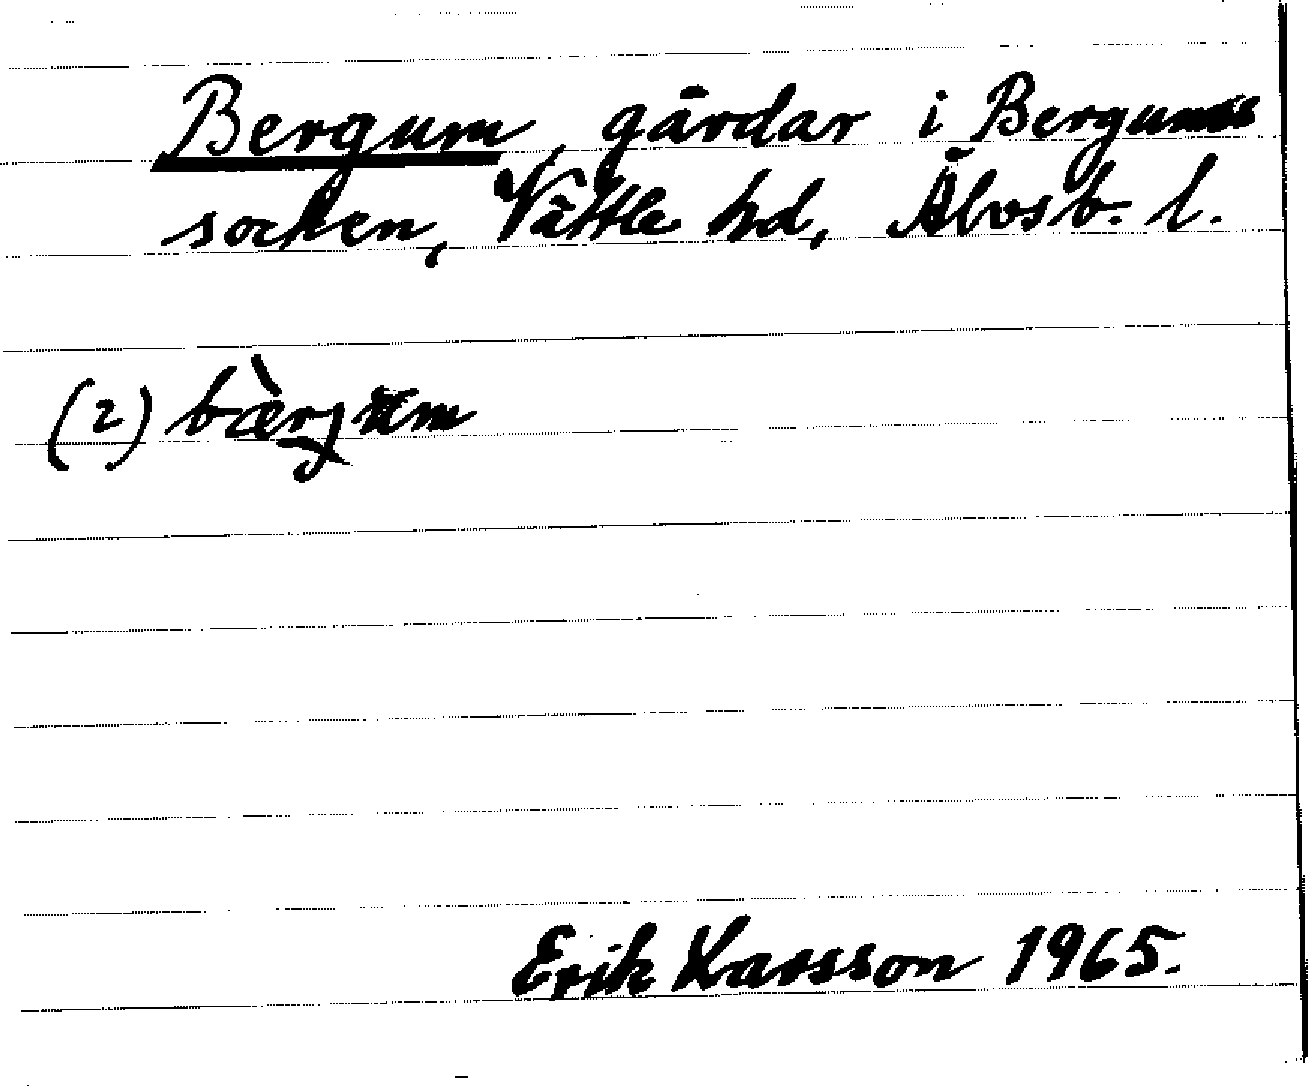 Bergum, gårdar i Bergums
socken, Vättle hd, Älvsb. l.
(2) bærjum
Erik Larsson 1965.